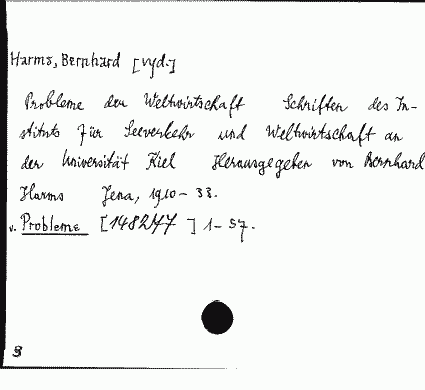 Harms, Bernhard [vyd.]
Probleme der Weltwirtschaft Schriften des In-
stituts für Seeverkehr und Weltwirtschaft an
der Universität Kiel Herausgegeben von Bernhard
Harms Jena, 1910-33.
v. Probleme [148277 ] 1-57.